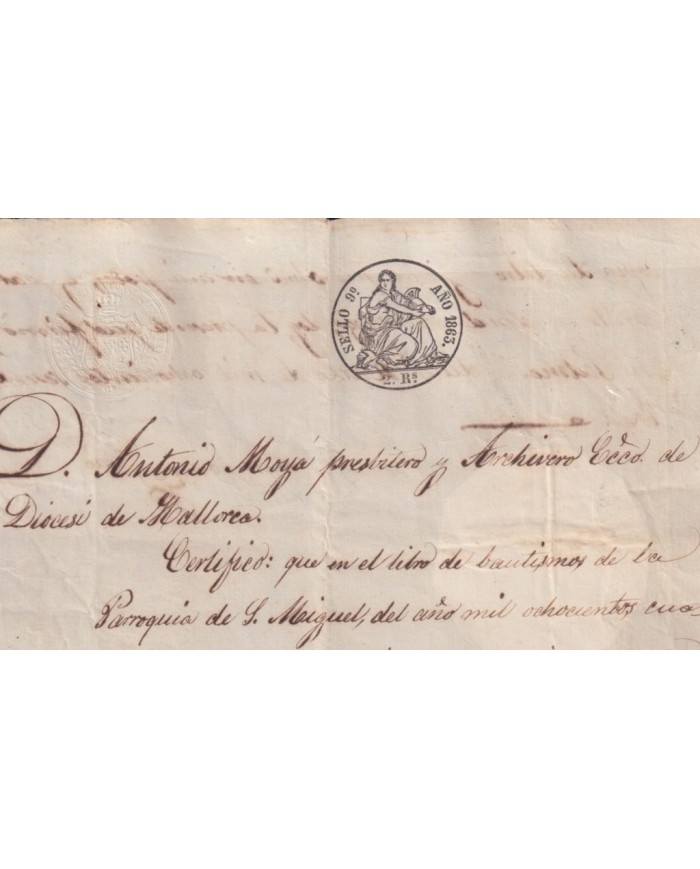 SELLO 9º AÑO 1863.
2. Rs
D. Antonio Moyá presbitero y Archivero Ecco. de
Diocesi de Mallorca.
Certifico: que en el libro de bautismos de la
Parroquia de S. Miguel, del año mil ochocientos cua-